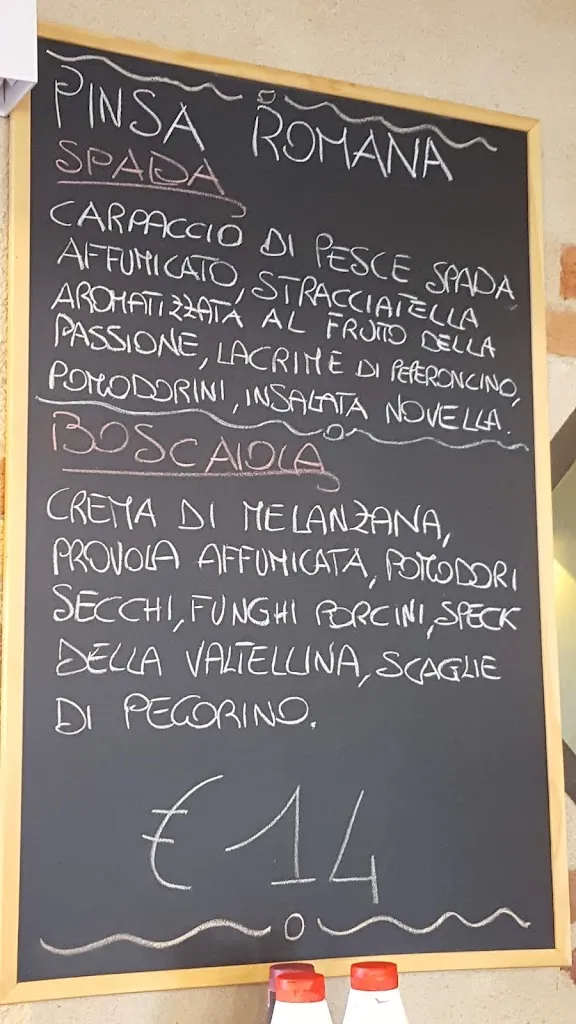 PINSA ROMANA
SPADA
CARPACCIO DI PESCE SPADA
AFFUMICATO, STRACCIATELLA
AROMATIZZATA AL FRUTO DELLA
PASSIONE, LACRIME DI PEPERONCINO,
POMODORINI, INSALATA NOVELLA.
BOSCAIOLA
CREMA DI MELANZANA,
PROVOLA AFFUMICATA, POMODORI
SECCHI, FUNGHI PORCINI, SPECK
DELLA VALTELLINA, SCAGLIE
DI PECORINO.
€ 14